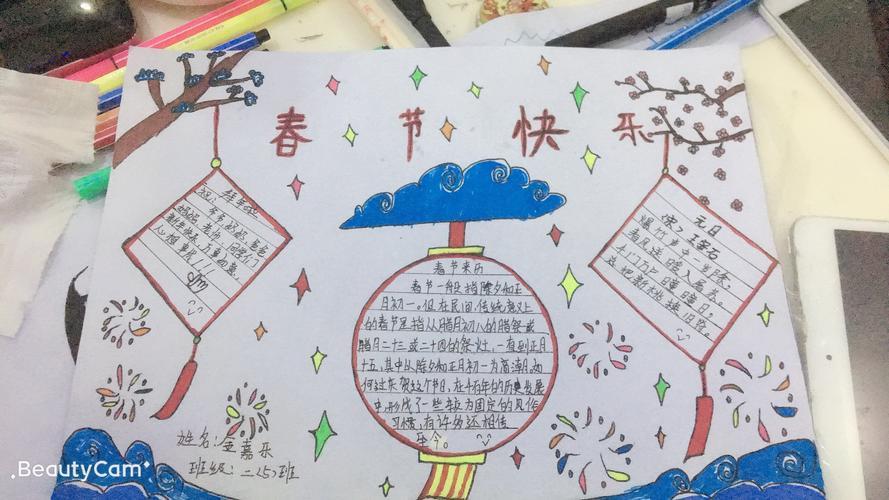 春节快乐
拜年啦
祝：爷爷奶奶、爸爸
妈妈、老师、同学们
新年快乐、万事如意、
心想事成！！
春节来历
春节一般指除夕和正
月初一。但在民间，传统意义上
的春节是指从腊月初八的腊祭或
腊月二十三或二十四的祭灶，一直到正月
十五，其中以除夕和正月初一为高潮。如
何过庆贺这个节日，在千百年的历史发展
中，形成了一些较为固定的风俗
习惯，有许多还相传
至今。
元日
宋 王安石
爆竹声中一岁除，
春风送暖入屠苏。
千门万户曈曈日，
总把新桃换旧符。
姓名：金嘉乐
班级：二(5)班
BeautyCam